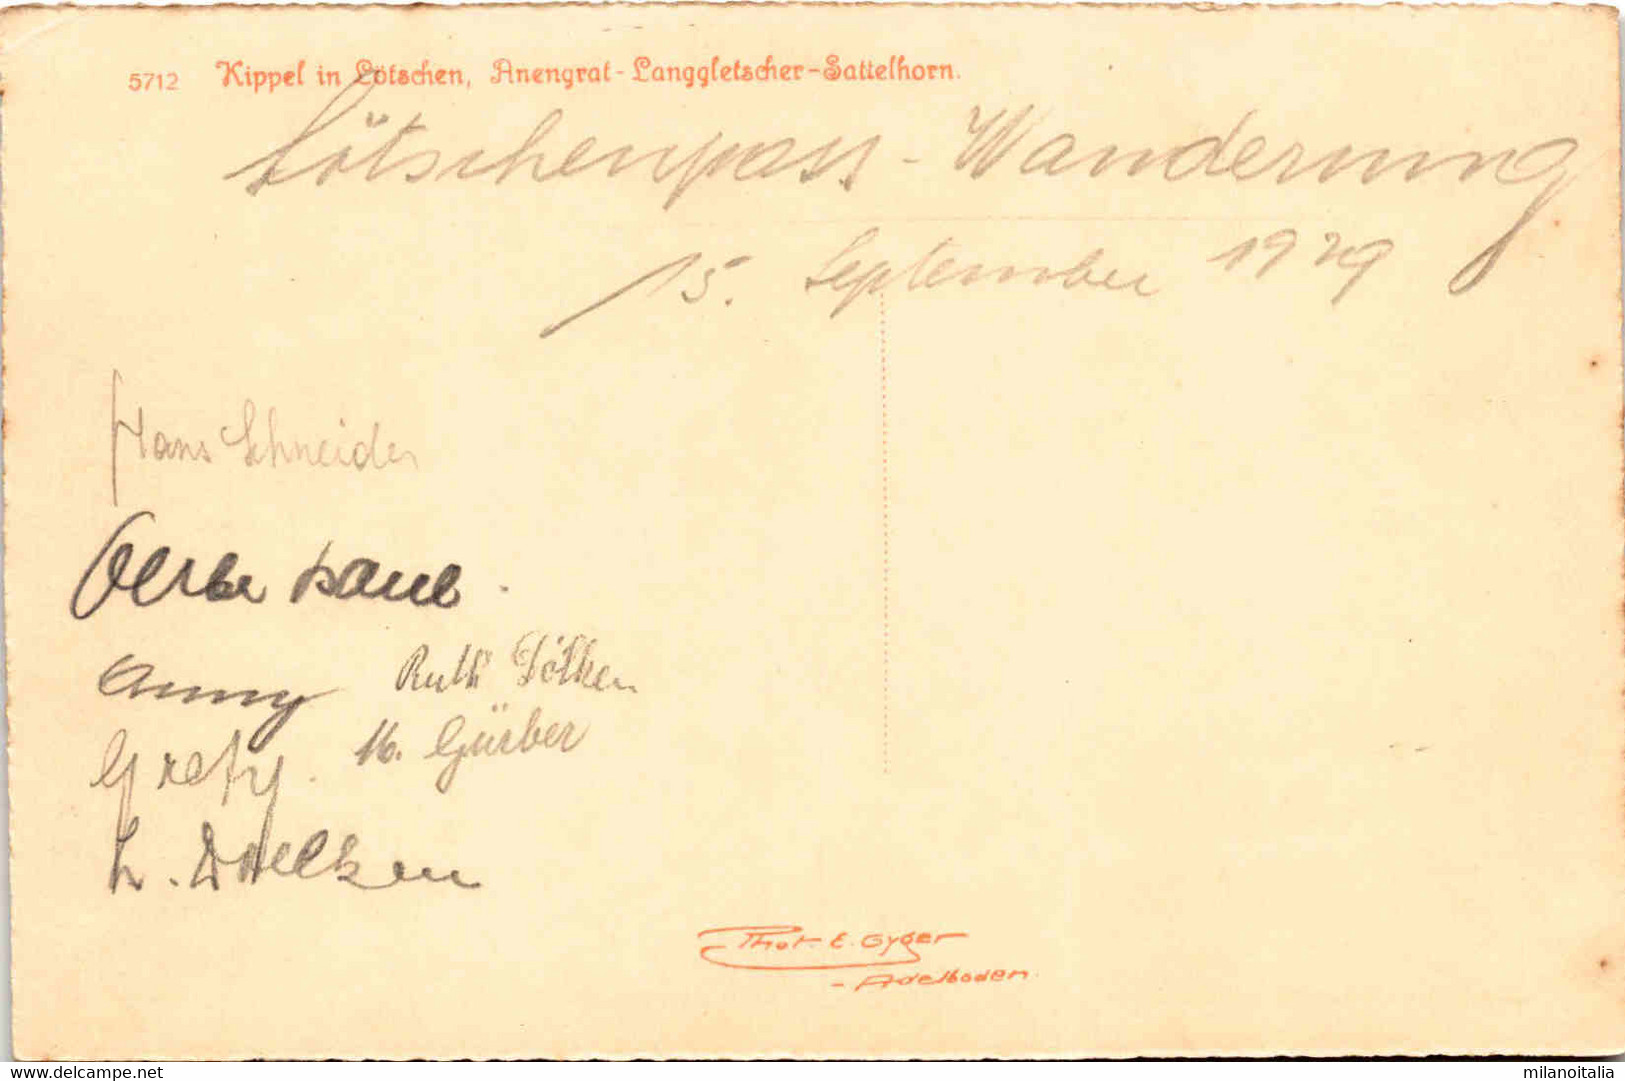 5712 Kippel in Lötschen, Anengrat-Langgletscher-Sattelhorn.
Lötschenpass-Wanderung
15. September 1929
Hans Schneider
Anny
Ruth Dölken
Grety.
M. Gürber
L. Doelken
Phot. E. Gyger
- Adelboden.
delcampe.net
milanoitalia